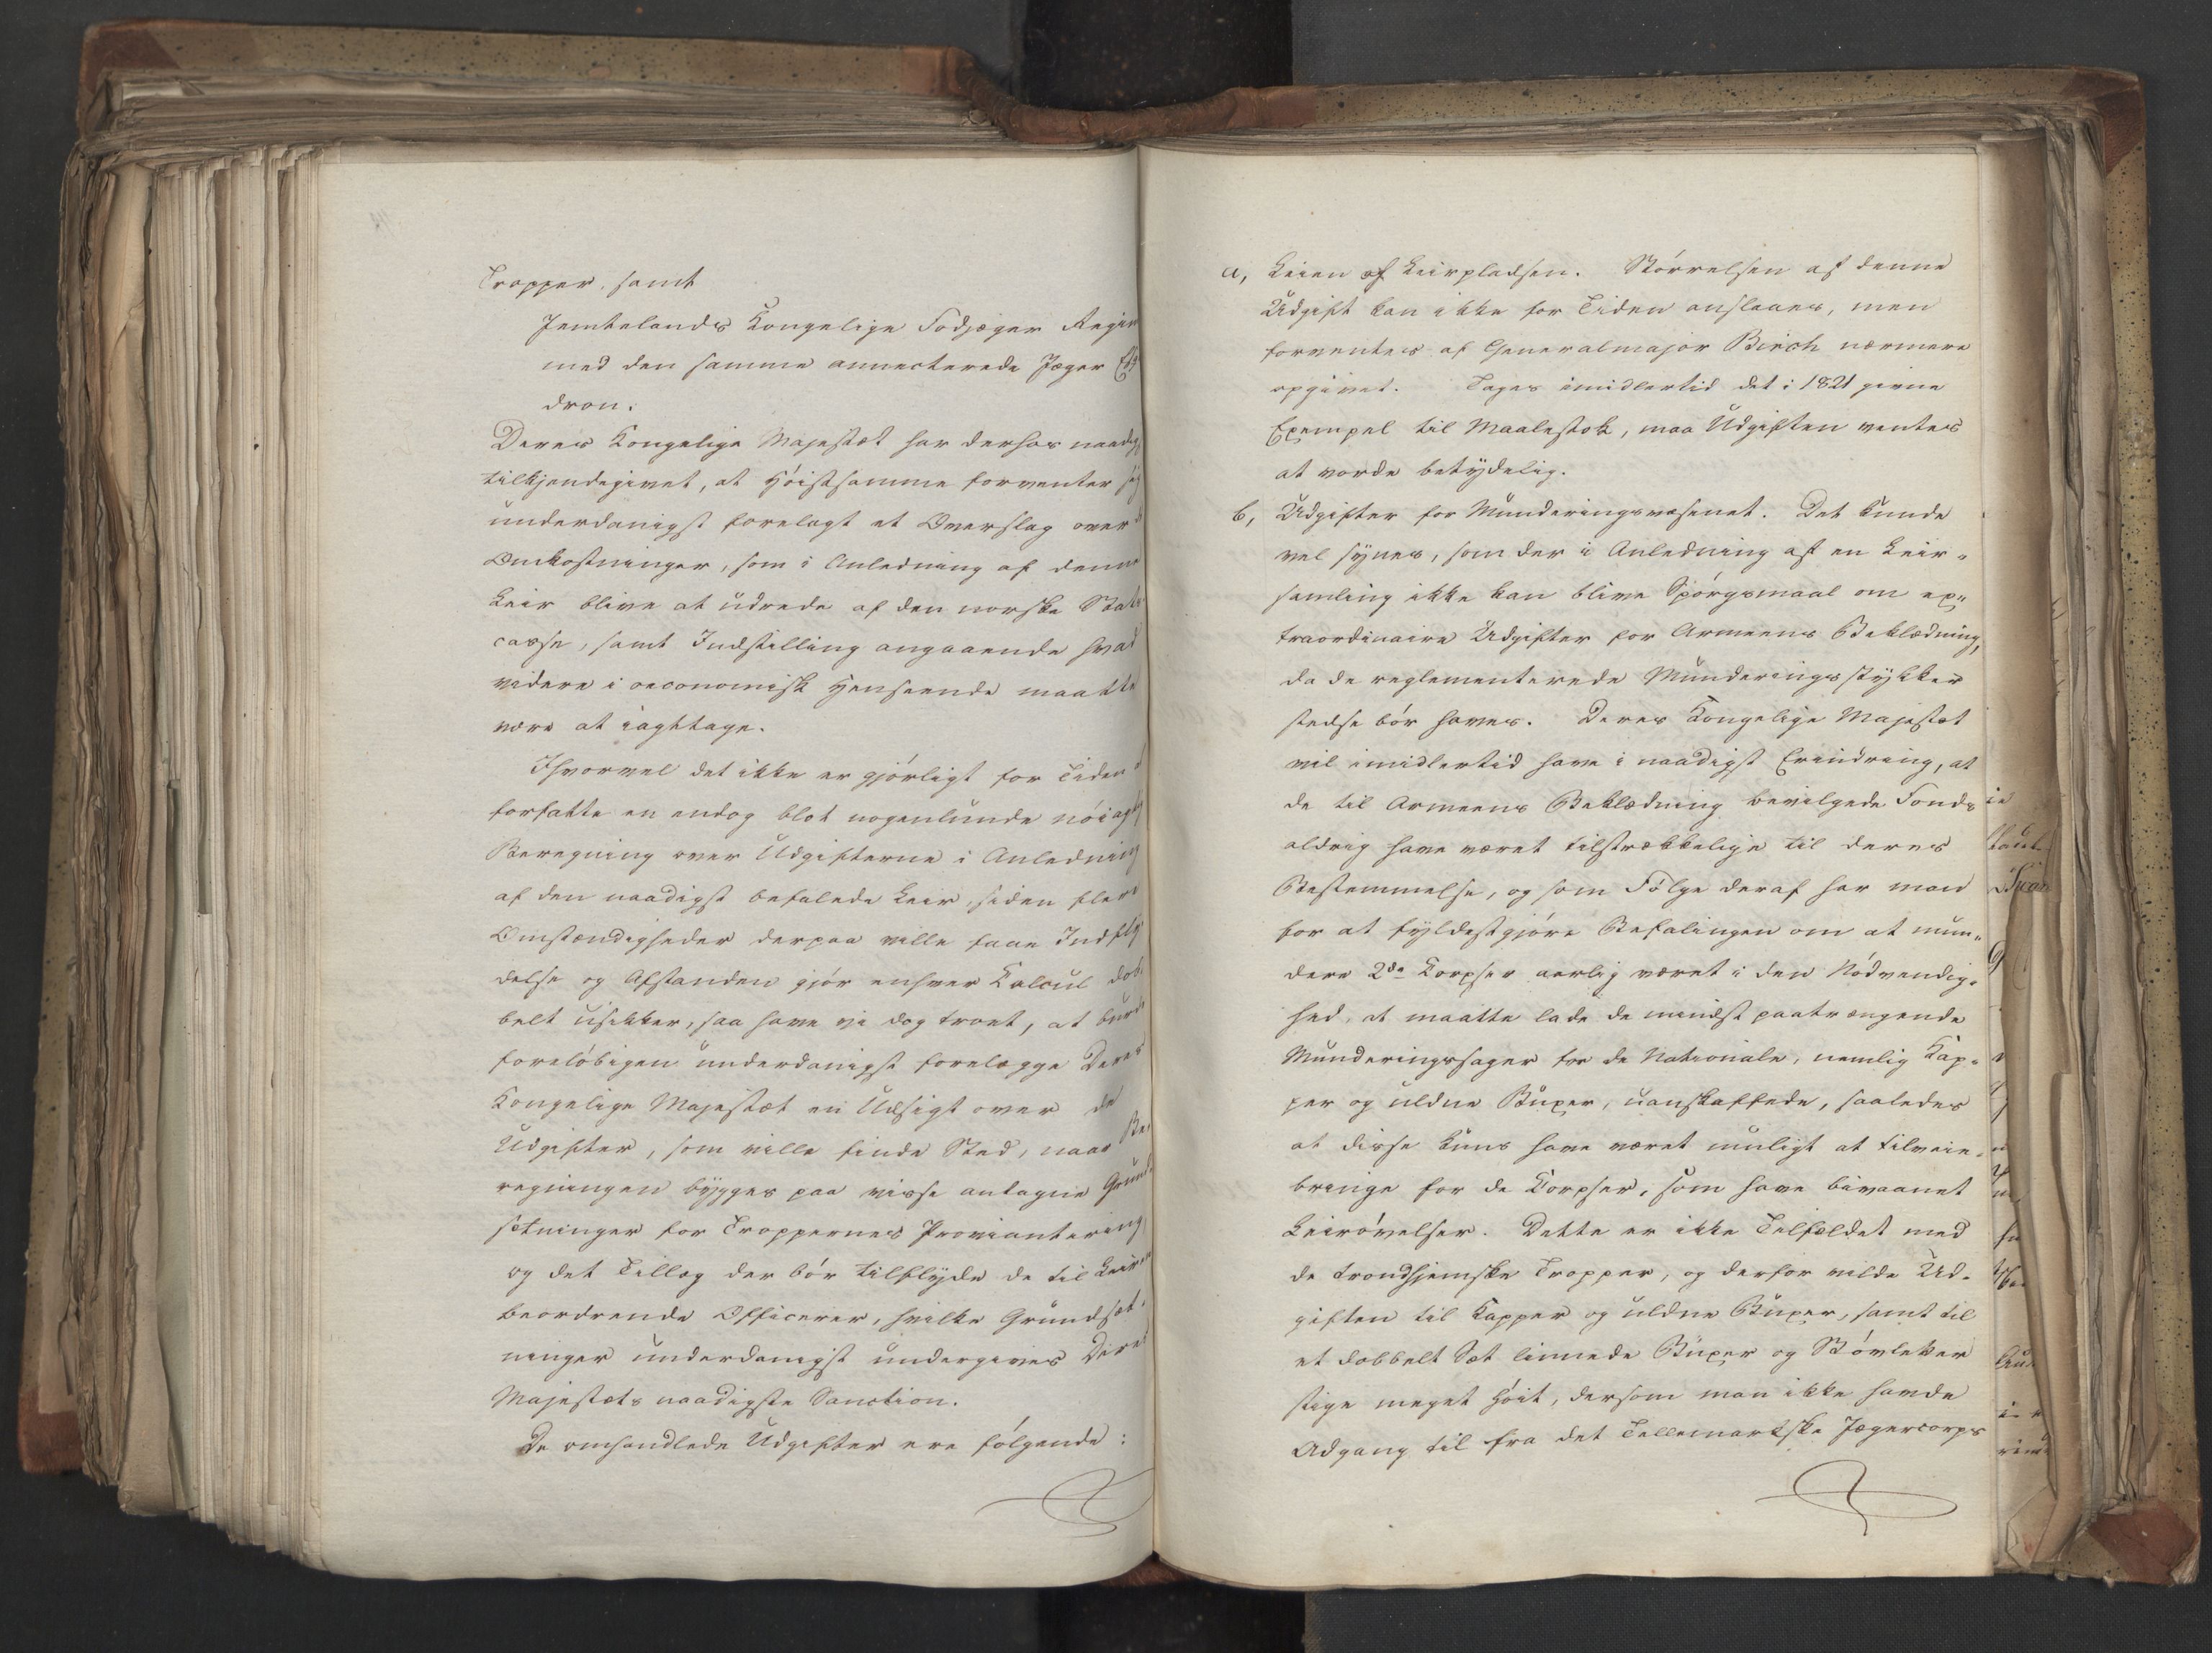 Tropper, samt
Jemtelands Kongelige Fodjæger Regim
med den samme annecterede Jæger Esk
dron.
Deres Kongelige Majestæt har derhos naadigst
tilkjendegivet, at Høistsamme forventer sig
underdanigst forelagt et Overslag over de
Omkostninger, som i Anledning af denne
Leir blive at udrede af den norske Stats
casse, samt Indstilling angaaende hvad
videre i oeconomisk Henseende maatte
være at iagttage.
Ihvorvel det ikke er gjørligt for Tiden at
forfatte en endog blot nogenlunde nøiagtig
Beregning over Udgifterne i Anledning
af den naadigst befalede Leir, siden flere
Omstændigheder derpaa ville faae Indfly
delse og Afstanden gjør enhver Calcul dob
belt usikker, saa have vi dog troet, at burde
foreløbigen underdanigst forelægge Deres
Kongelige Majestæt en Udsigt over de
Udgifter, som ville finde Sted, naar Be
regningen bygges paa visse antagne Grund
sætninger for Troppernes Proviantering
og det Tillæg der bør tilflyde de til Leiren
beordrende Officerer, hvilke Grundsæt-
ninger underdanigst undergives Deres
Majestæts naadigste Sanction.
De omhandlede Udgifter ere følgende:
a, Leien af Leirpladsen. Størrelsen af denne
Udgift kan ikke for Tiden anslaaes, men
forventes af Generalmajor Birch nærmere
opgivet. Tages imidlertid det i 1821 givne
Exempel til Maalestok, maa Udgiften ventes
at vorde betydelig.
b, Udgifter for Munderingsvæsenet. Det kunde
vel synes, som der i Anledning af en Leir-
samling ikke kan blive Spørgsmaal om ex-
traordinaire Udgifter for Armeens Beklædning,
da de reglementerede Munderingsstykker
stedse bør haves. Deres Kongelige Majestæt
vil imidlertid have i naadigst Erindring, at
de til Armeens Beklædning bevilgede Fonds
aldrig have været tilstrækkelige til deres
Bestemmelse, og som Følge deraf har man
for at fyldestgjøre Befalingen om at mun-
dere 2de Corpser aarlig været i den Nødvendig-
hed, at maatte lade de mindst paatrængende
Munderingssager for de Nationale, nemlig Kap-
per og uldne Buxer, uanskaffede, saaledes
at disse kuns have været muligt at tilveie-
bringe for de Corpser, som have bivaanet
Leirøvelser. Dette er ikke Tilfældet med
de trondhjemske Tropper, og derfor vilde Ud-
giften til Kapper og uldne Buxer, samt til
et dobbelt Sæt linnede Buxer og Støvletter
stige meget høit, dersom man ikke havde
Adgang til fra det Tellemarkske Jægercorps